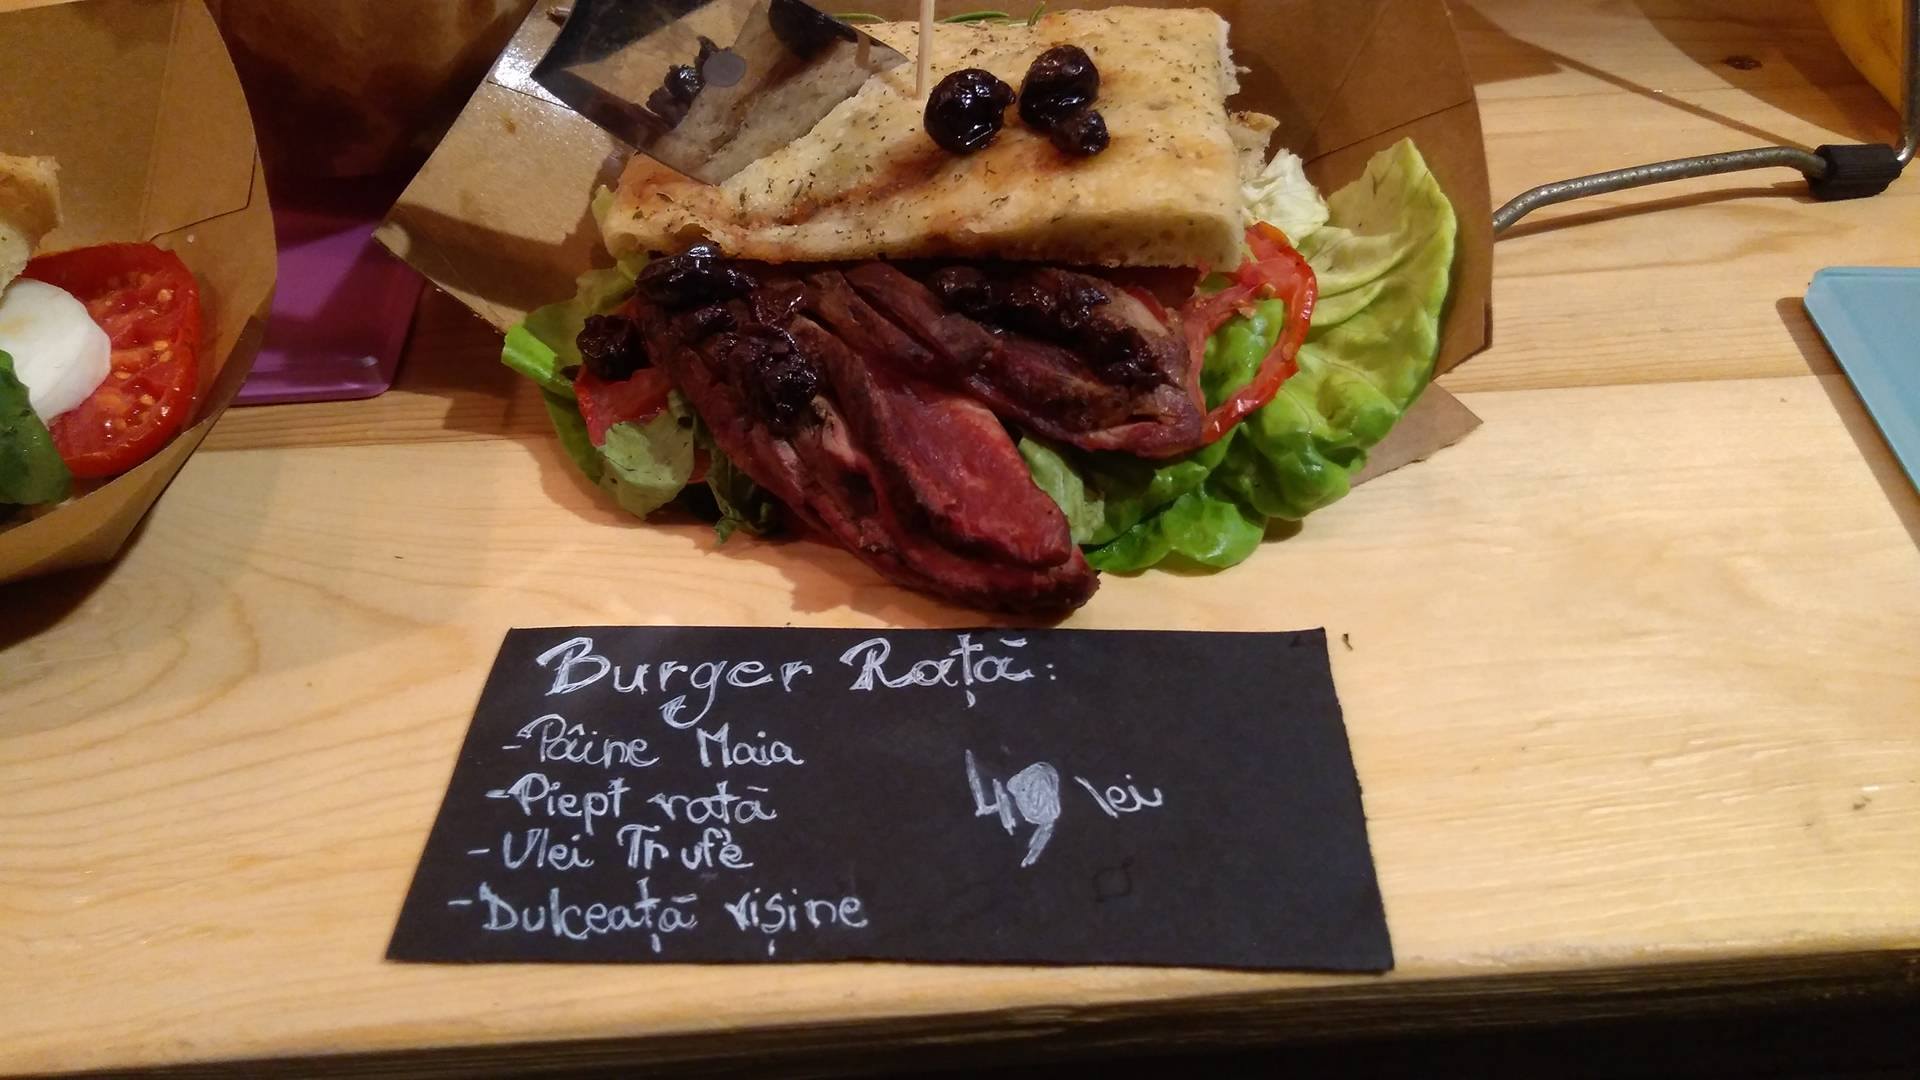 Burger Rață:
-Pâine Maia
-Piept rată
-Ulei Trufe
-Dulceață vișine
49 lei